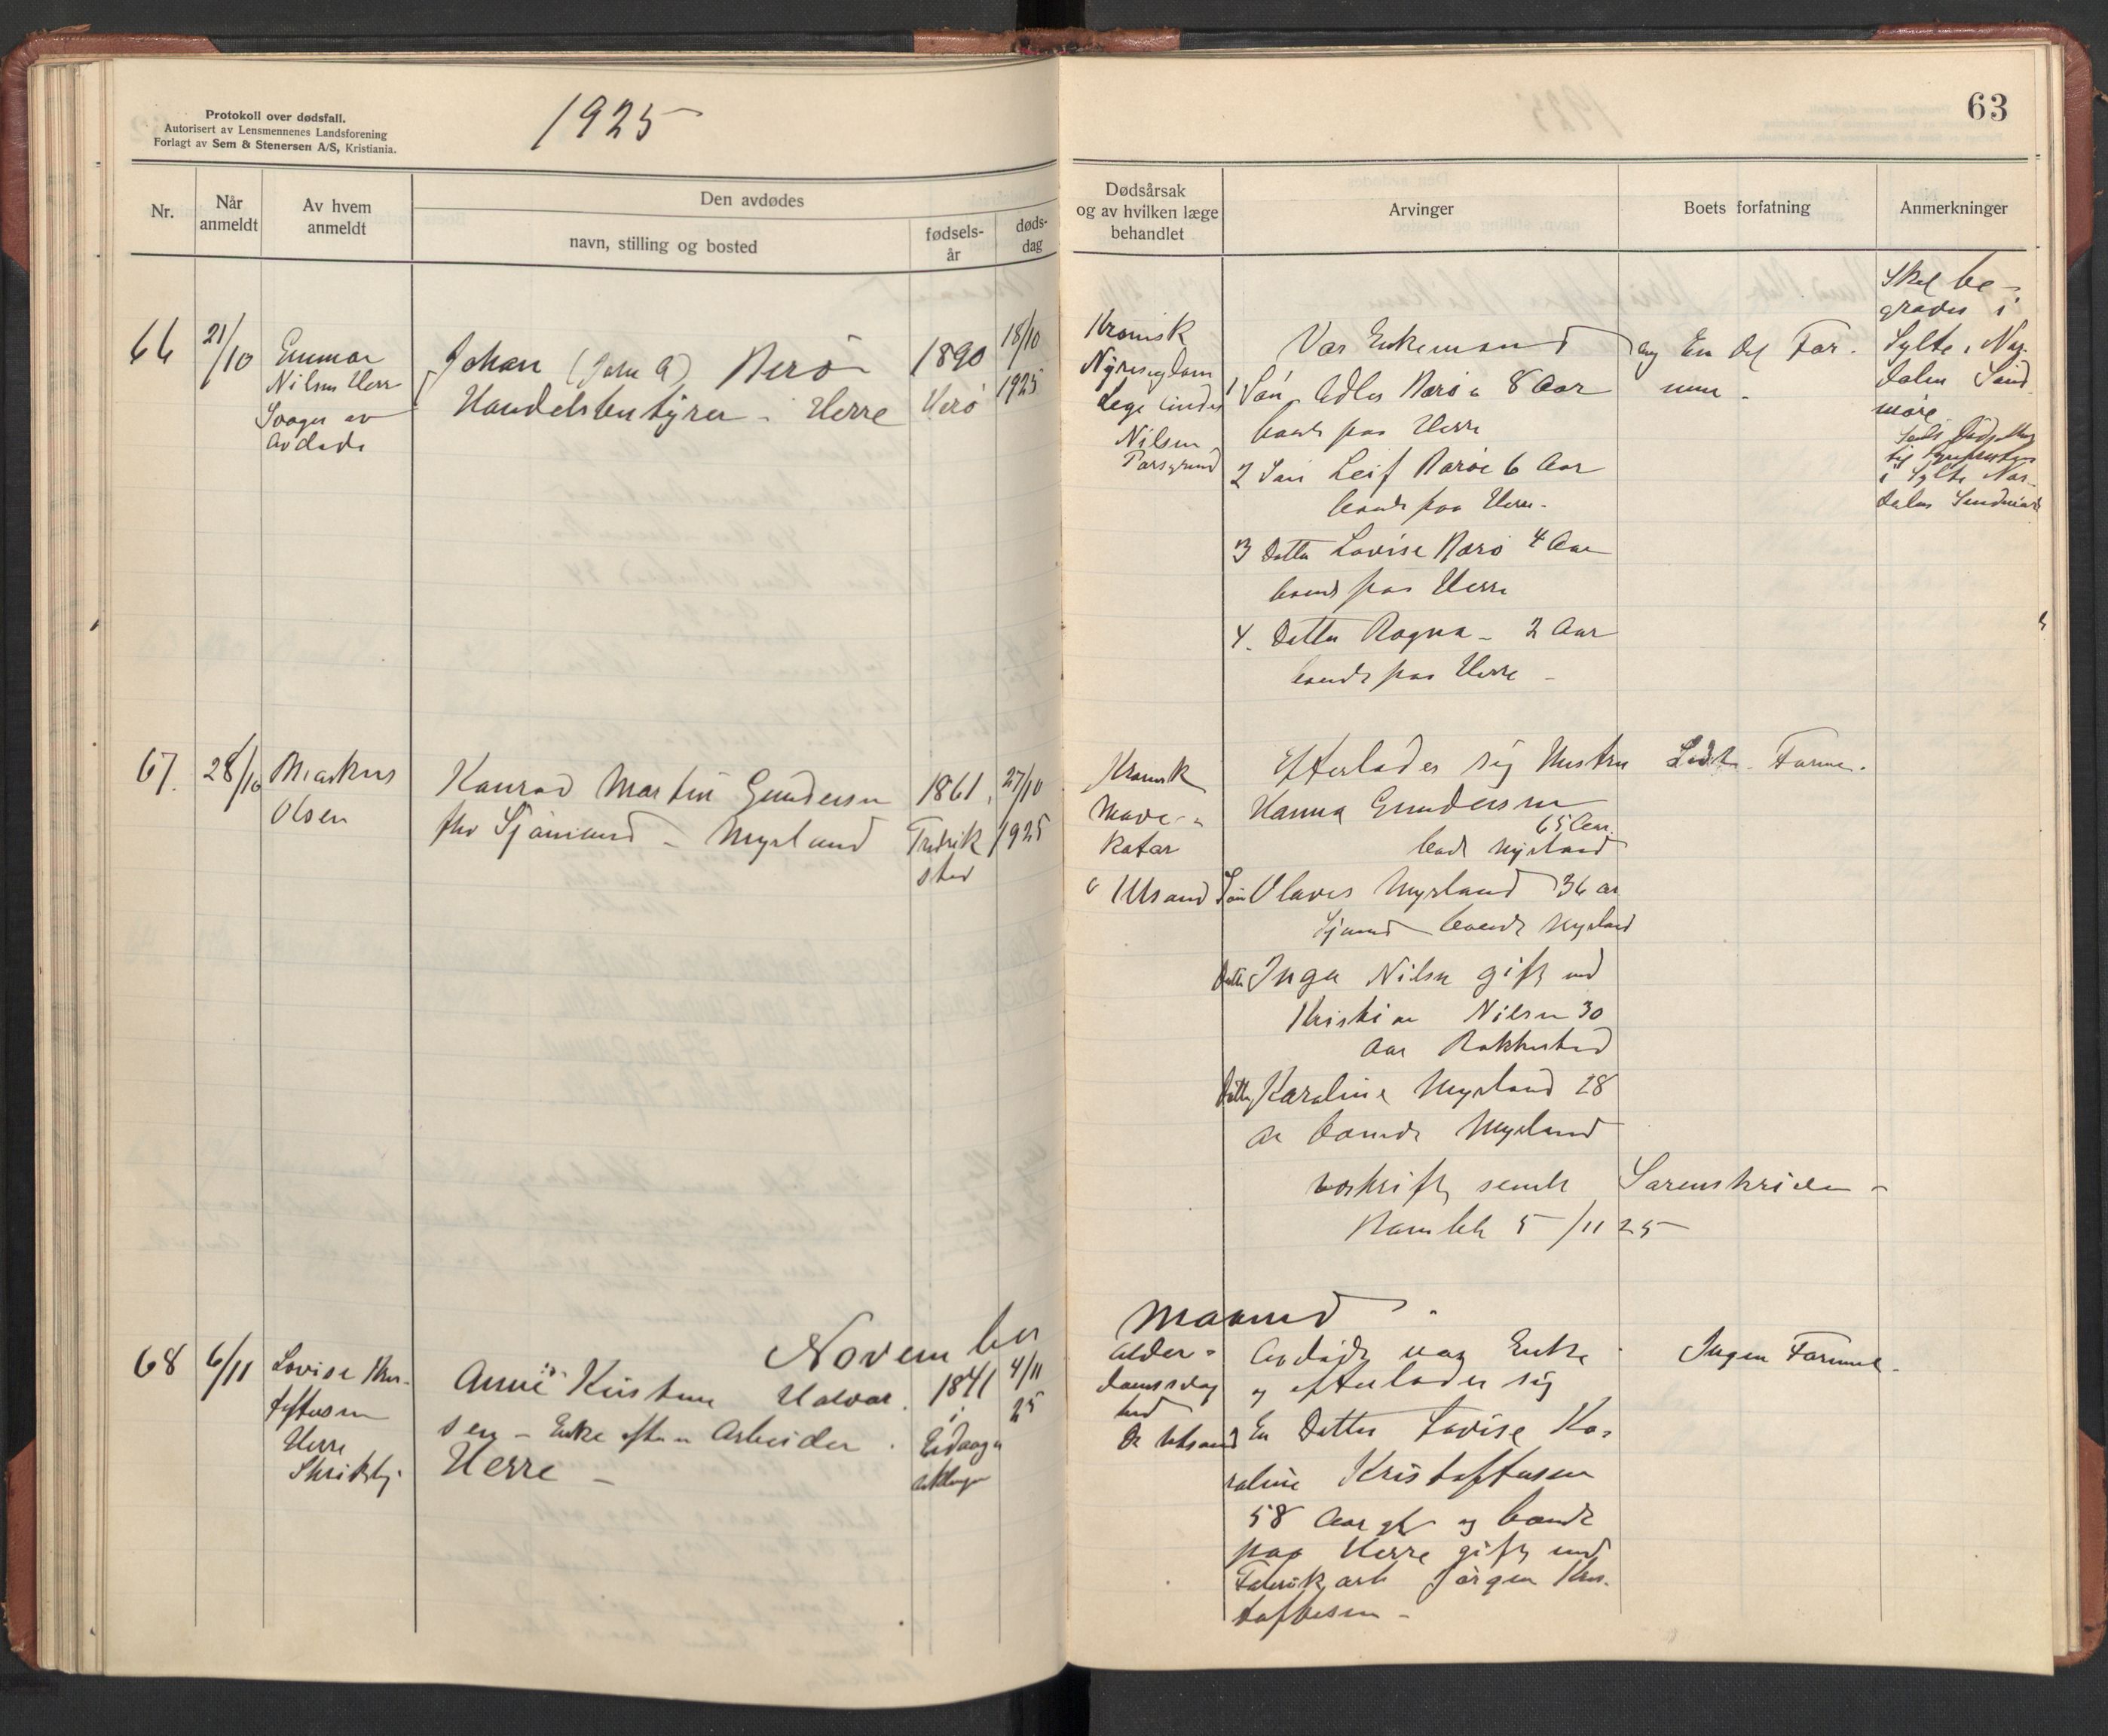 Protokoll over dødsfall.
Autorisert av Lensmennenes Landsforening
Forlagt av Sem & Stenersen A/S, Kristiania.
1925
63
Nr.
Når anmeldt
Av hvem anmeldt
Den avdødes
navn, stilling og bosted
fødsels-år
døds-dag
Dødsårsak
og av hvilken læge
behandlet
Arvinger
Boets forfatning
Anmerkninger
66
21/10
Nilsen Herre
Svoger av
Avdøde
Johan
Handelsbestyrer - Herre
1890
18/10
1925
Kronisk
Lege
Nilsen
Porsgrund
Var Enkemand
1 Søn 8 Aar
boende paa Herre
2 Søn Leif 6 Aar
boende paa Herre -
3 Datter Lovise 4 Aar
boende paa Herre
4. Datter Ragna - 2 Aar
boende paa Herre -
og En Del For-
mue -
Skal be-
graves i
Sylte, Nor-
dalen Sønd
møre
i Sylte Nor-
dalen Søndmøre
67.
28/10
Markus
Olsen
Konrad Martin Gundersen
fhv Sjømand - Myrland
1861
Fredrik
stad
27/10
1925
Kronisk
Mave-
Katar
Utsand
Efterlader sig Hustru
Hanna Gundersen
65 Aar
boende Myrland
Søn Olaves Myrland 36 aar
Sjømand boende Myrland
Datter Inga Nilsen gift med
Kristian Nilsen 30
Aar Rakkestad
Datter Karoline Myrland 28
Aar boende Myrland
avskrift sendt Sorenskriveren -
Bamble 5/11 25
Lidt Formue.
November
Maaned.
68
6/11
Lovise Kris-
toffersen
Herre
Anne Kirstine Halvor-
sen - Enke efter Arbeider -
Herre -
1841
Eidanger
4/11
25
Alder-
domssvag
hed
Dr Utsand
Avdøde var Enke
og efterlader sig
En Datter Lovise Ka-
roline Kristoffersen
58 Aar gl og boende
paa Herre gift med
Fabrikarb Jørgen Kris-
toffersen -
Ingen Formue -